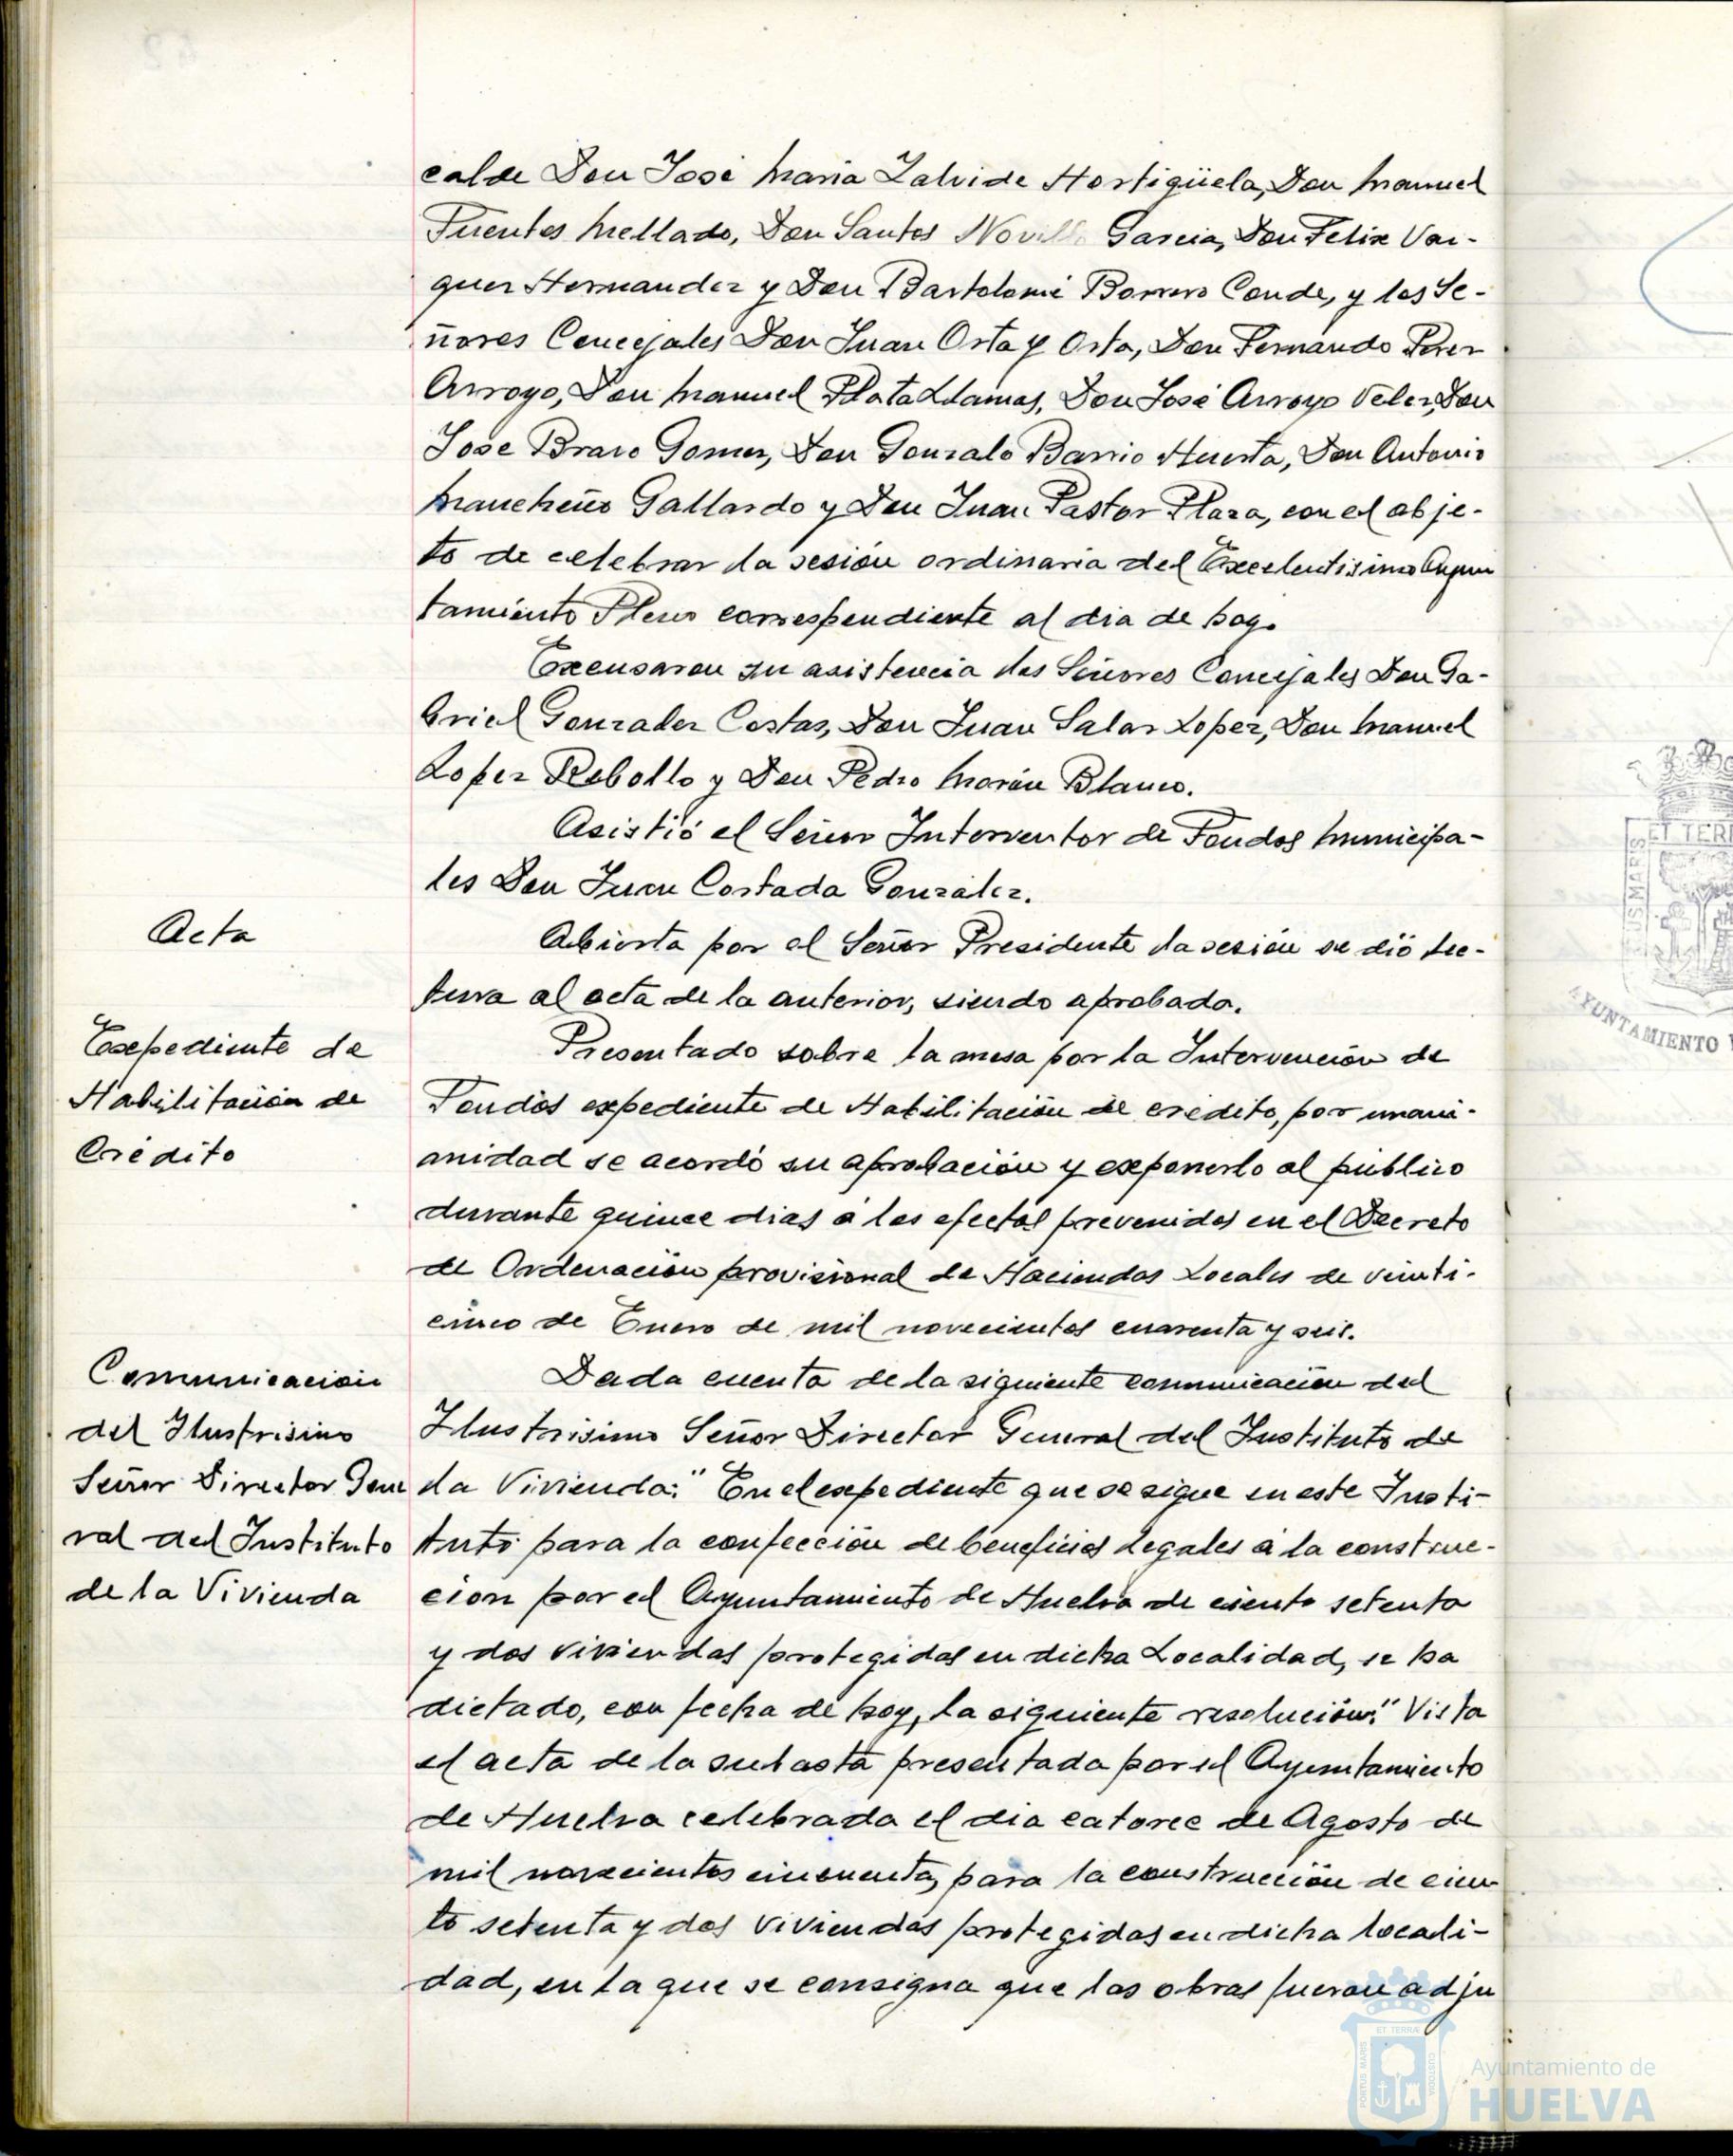 calde Don José Maria Zalvide Hortigüela, Don Manuel
Fuentes Mellado, Don Santos Novillo Garcia, Don Felix Vaz-
quez Hernandez y Don Bartolomé Borrero Conde, y los Se-
ñores Concejales Don Juan Orta y Orta, Don Fernando Perez
Arroyo, Don Manuel Plata Llamas, Don José Arroyo Velez, Don
Jose Bravo Gomez, Don Gonzalo Barrio Huerta, Don Antonio
Mancheño Gallardo y Don Juan Pastor Plaza, con el obje-
to de celebrar la sesión ordinaria del Excelentisimo Ayun
tamiento Pleno correspondiente al dia de hoy.
Excusaron su asistencia los Señores Concejales Don Ga-
briel Gonzalez Costas, Don Juan Salas Lopez, Don Manuel
Lopez Rebollo y Don Pedro Morón Blanco.
Asistió el Señor Interventor de Fondos Municipa-
les Don Juan Costada González.
Acta
Abierta por el Señor Presidente la sesión se dió lec-
tura al acta de la anterior, siendo aprobada.
Expediente de
Habilitación de
Crédito
Presentado sobre la mesa por la Intervención de
Fondos expediente de Habilitación de crédito, por unani-
midad se acordó su aprobación y exponerlo al público
durante quince dias á los efectos prevenidos en el Decreto
de Ordenación provisional de Haciendas Locales de veinti-
cinco de Enero de mil novecientos cuarenta y seis.
Comunicación
del Ilustrisimo
Señor Director Gene
ral del Instituto
de la Vivienda
Dada cuenta de la siguiente comunicación del
Ilustrisimo Señor Director General del Instituto de
la Vivienda: "En el expediente que se sigue en este Insti-
tuto para la confección de beneficios legales á la construc-
cion por el Ayuntamiento de Huelva de ciento setenta
y dos viviendas protegidas en dicha Localidad, se ha
dictado, con fecha de hoy, la siguiente resolución: "Vista
el acta de la subasta presentada por el Ayuntamiento
de Huelva celebrada el dia catorce de Agosto de
mil novecientos cincuenta, para la construcción de cien-
to setenta y dos viviendas protegidas en dicha locali-
dad, en la que se consigna que las obras fueron adju
ET TERR
AYUNTAMIENTO
PORTUS MARIS
ET TERRA
CUSTODIA
Ayuntamiento de
HUELVA